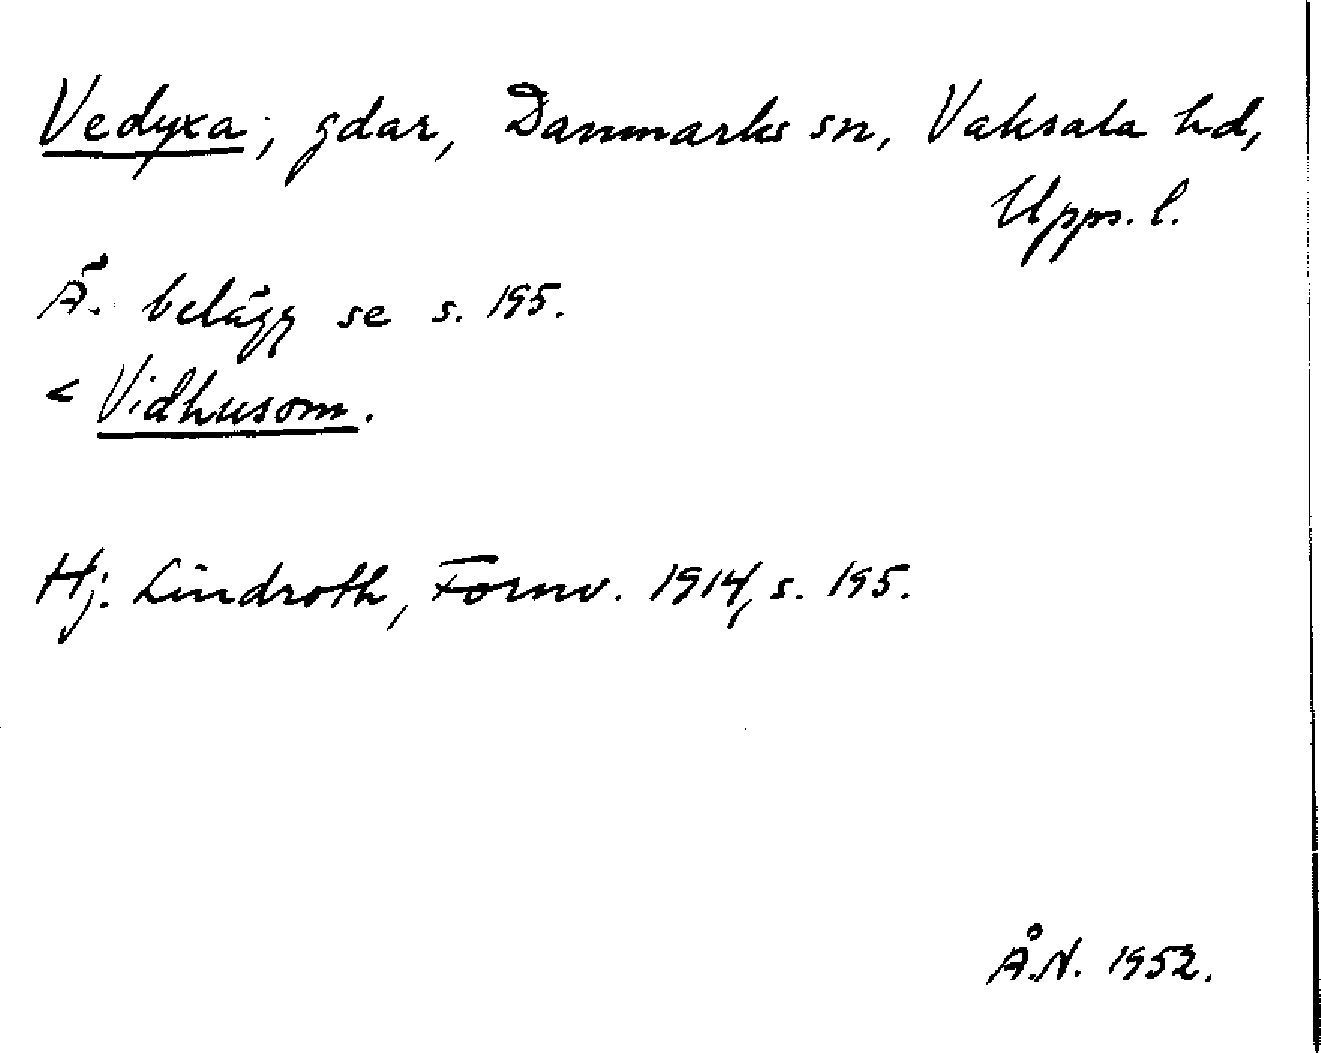 Vedyxa, gdar, Danmarks sn, Vaksala hd,
Upps. l.
Ä. belägg se s. 195.
< Vidhusom.
Hj. Lindroth, Fornv. 1914, s. 195.
Å.N. 1952.